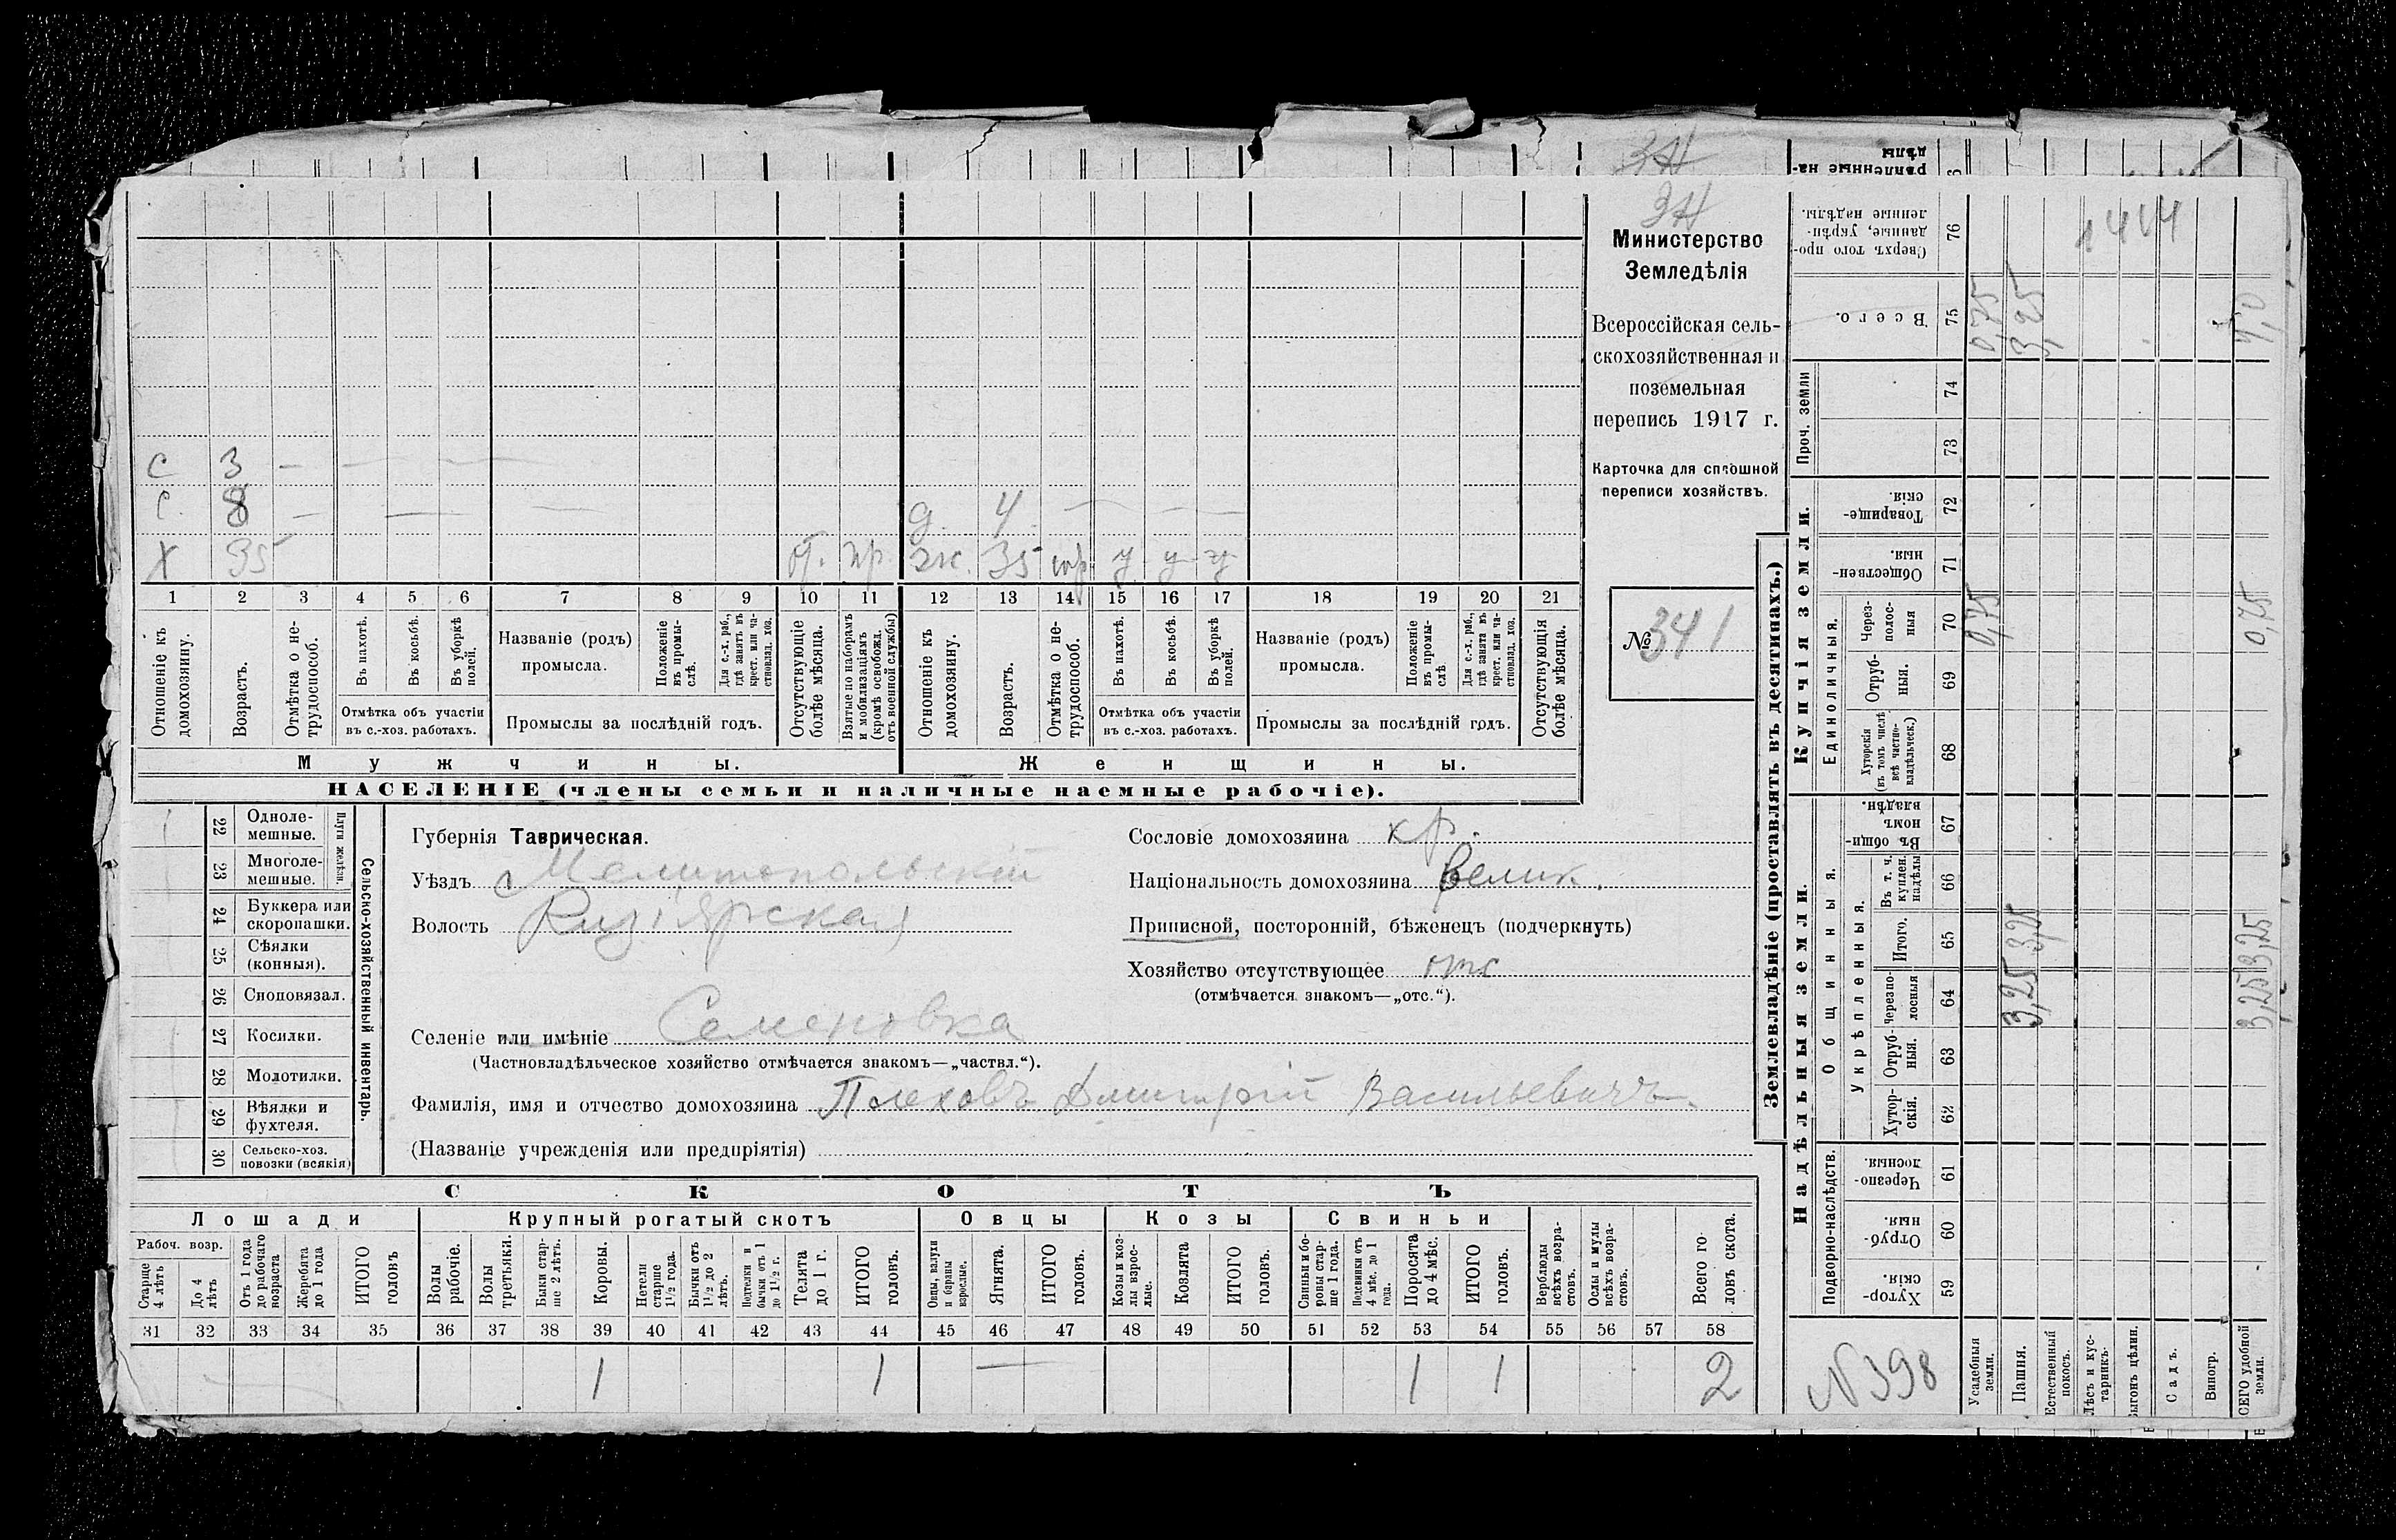 ЗН
ЗН
Министерство
Земледѣлія
Всероссійская сель-
скохозяйственная и
поземельная
перепись 1917 г.
Карточка для сплошной
переписи хозяйствъ.
№ 341
с 3 — — — —
с. 8 — — — — д. 4. — — —
х 35 от. пр. ж. 35 тр. у у у
1 2 3 4 5 6 7 8 9 10 11 12 13 14 15 16 17 18 19 20 21
Отношеніе къ домохозяину.
Возрастъ.
Отмѣтка о не-трудоспособ.
Въ пахотѣ.
Въ косьбѣ.
Въ уборкѣ полей.
Отмѣтка объ участіи
въ с.-хоз. работахъ.
Названіе (родъ)
промысла.
Положеніе въ промы-слѣ.
Для с.-х. раб., гдѣ занятъ въ крест. или ча-стновлад. хоз.
Промыслы за послѣдній годъ.
Отсутствующіе болѣе мѣсяца.
Взятые по наборамъ и мобилизаціямъ (кромѣ освобожд. отъ военной службы)
Отношеніе къ домохозяину.
Возрастъ.
Отмѣтка о не-трудоспособ.
Въ пахотѣ.
Въ косьбѣ.
Въ уборкѣ полей.
Отмѣтка объ участіи
въ с.-хоз. работахъ.
Названіе (родъ)
промысла.
Положеніе въ промы-слѣ
Для с.-х. раб., гдѣ занята въ крест. или ча-стновлад. хоз.
Промыслы за послѣдній годъ.
Отсутствующія болѣе мѣсяца.
Мужчины. Женщины.
НАСЕЛЕНІЕ (члены семьи и наличные наемные рабочіе).
22 Одноле-мешные.
23 Многоле-мешные.
Плуги желѣзн.
24 Буккера или скоропашки.
25 Сѣялки (конныя).
26 Сноповязал.
27 Косилки.
28 Молотилки.
29 Вѣялки и фухтеля.
30 Сельско-хоз. повозки (всякія)
Сельско-хозяйственный инвентарь.
Губернія Таврическая.
Уѣздъ Мелитопольскій
Волость Кизіярская
Сословіе домохозяина кр.
Національность домохозяина велик.
Приписной, посторонній, бѣженецъ (подчеркнуть)
Хозяйство отсутствующее отс
(отмѣчается знакомъ—„отс.“).
Селеніе или имѣніе Семеновка
(Частновладѣльческое хозяйство отмѣчается знакомъ—„частвл.“).
Фамилія, имя и отчество домохозяина Плеховъ Дмитрій Васильевичъ
(Названіе учрежденія или предпріятія)
СКОТЪ
Лошади Крупный рогатый скотъ Овцы Козы Свиньи
Рабоч. возр.
Старше 4 лѣтъ
До 4 лѣтъ
Отъ 1 года до рабочаго возраста
Жеребята до 1 года
ИТОГО головъ
Волы рабочіе.
Волы третьяки.
Быки стар-ше 2 лѣтъ.
Коровы.
Нетели старше 1½ года.
Бычки отъ 1½ до 2 лѣтъ.
Подтелки и бычки отъ 1 до 1½ г.
Телята до 1 г.
ИТОГО головъ.
Овцы, валухи и бараны взрослые.
Ягнята.
ИТОГО головъ.
Козы и коз-лы взрос-лые.
Козлята
ИТОГО головъ.
Свиньи и бо-ровы стар-ше 1 года.
Подсвинки отъ 4 мѣс. до 1 года.
Поросята до 4 мѣс.
ИТОГО головъ.
Верблюды всѣхъ возра-стовъ.
Ослы и мулы всѣхъ возра-стовъ.
Всего го-ловъ скота.
31 32 33 34 35 36 37 38 39 40 41 42 43 44 45 46 47 48 49 50 51 52 53 54 55 56 57 58
1 1 — 1 1 2
Землевладѣніе (проставлять въ десятинахъ.)
Надѣльныя земли. Купчія земли.
Подворно-наслѣдств. Общинныя. Единоличныя. Проч. земли
Укрѣпленныя.
Хутор-скія. 59
Отруб-ныя. 60
Черезпо-лосныя. 61
Хутор-скія. 62
Отруб-ныя. 63
Черезпо-лосныя 64
Итого. 65
Въ т. ч. куплен. надѣлы 66
Въ общин-номъ владѣн. 67
Хуторскія (въ томъ числѣ всѣ частно-владѣльческ.) 68
Отруб-ныя. 69
Через-полос-ныя 70
Обществен-ныя. 71
Товарище-скія. 72
73
74
Всего. 75
Сверхъ того про-данные, укрѣп-ленные надѣлы. 76
№ 398
Усадебныя земли. 0,75 0,75
Пашня. 3,25 3,25 3,25
Естественный покосъ.
Лѣсъ и кус-тарникъ.
Выгонъ цѣлин.
Садъ.
Виногр.
ВСЕГО удобной земли. 3,25 3,25 0,75 4,0